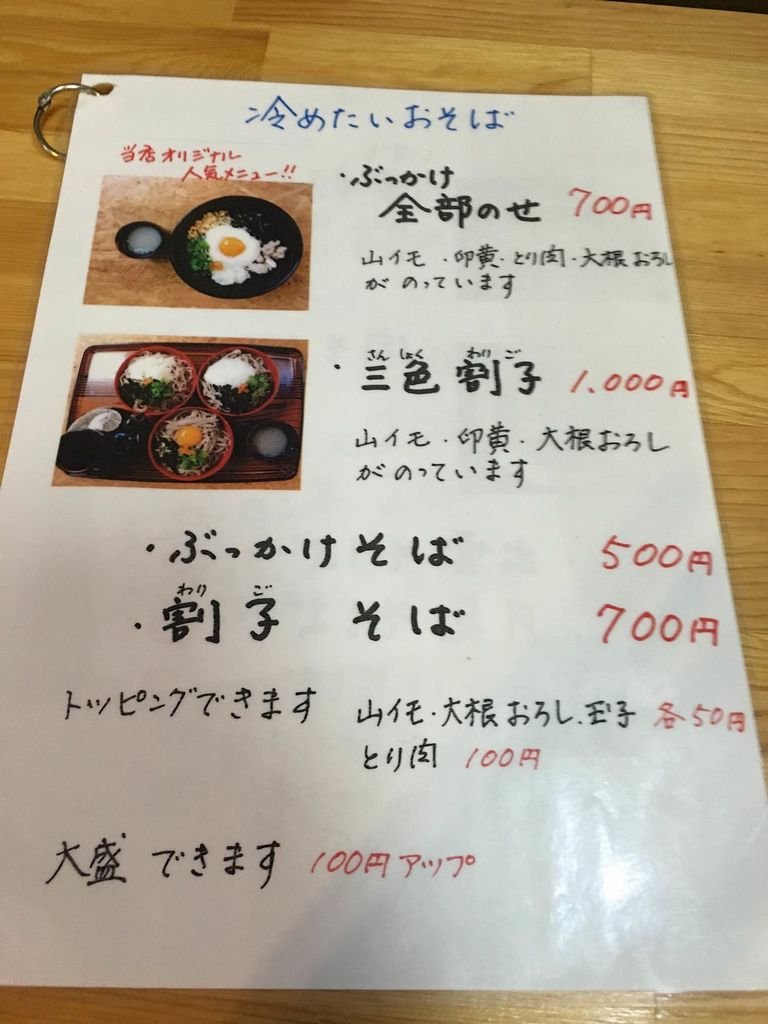 冷めたいおそば
当店オリジナル
人気メニュー!!
・ぶっかけ
全部のせ 700円
山イモ・卵黄・とり肉・大根おろし
がのっています
さんしょく わりご
・三色割子 1.000円
山イモ・卵黄・大根おろし
がのっています
・ぶっかけそば 500円
わりご
・割子 そば 700円
トッピングできます 山イモ・大根おろし、玉子 各50円
とり肉 100円
大盛できます 100円アップ